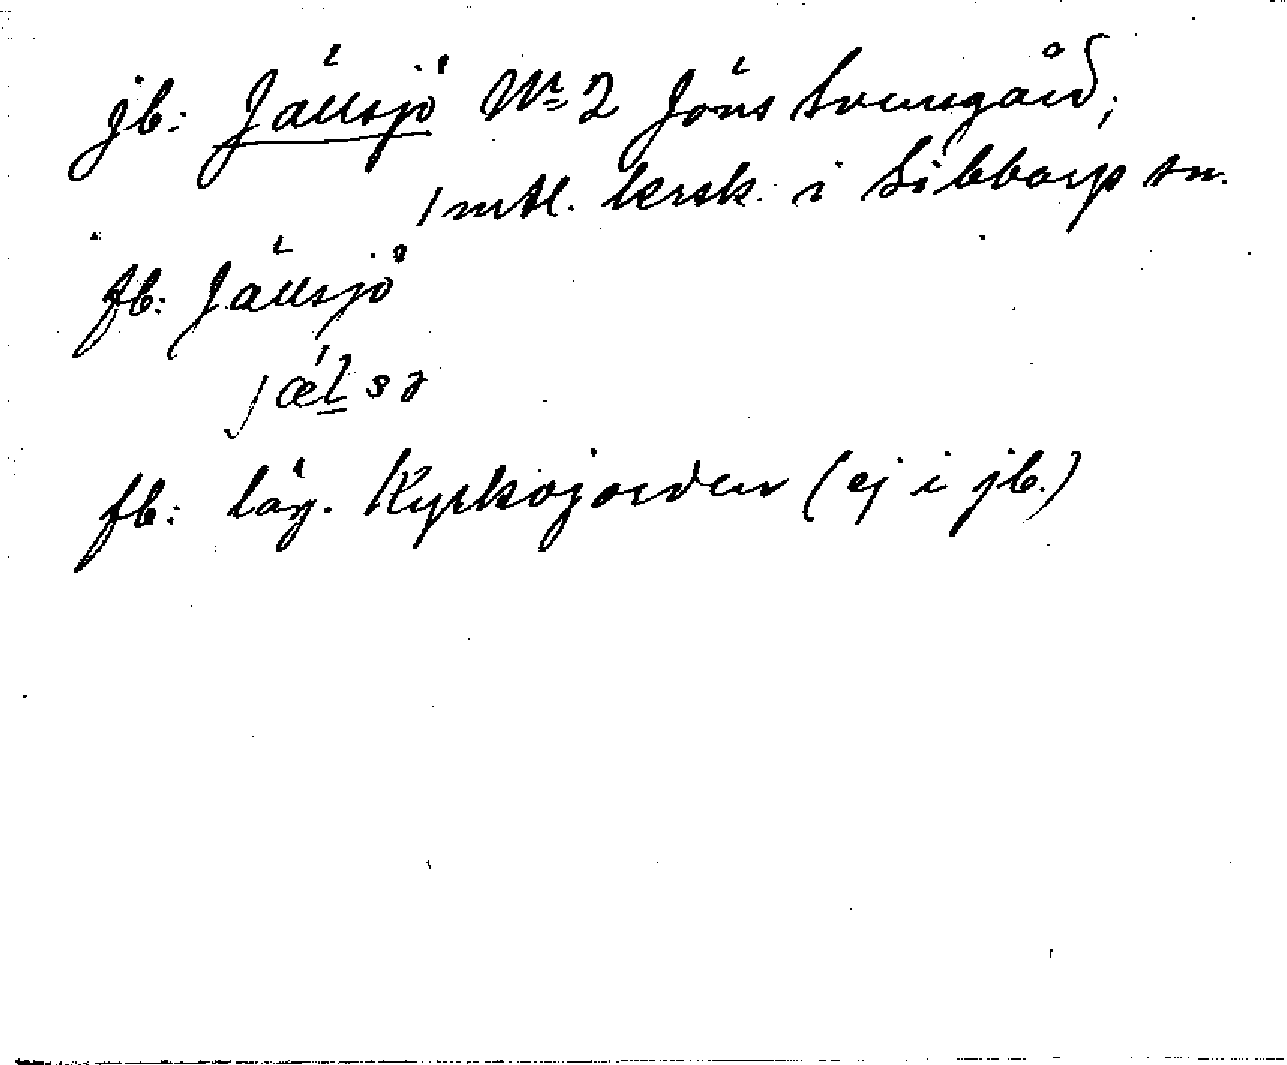 jb: Jällsjö Nr 2 Jöns Svensgård;
1 mtl. krsk. i Sibbarp sn.
fb: Jällsjö
jǽlsə
fb: läg. Kyrkojorden (ej i jb.)